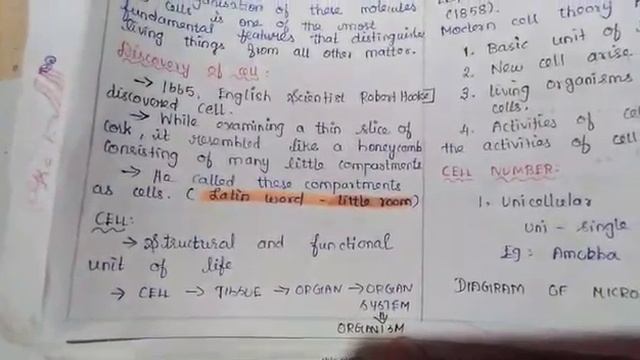 organisation of these molecules
cells is one of the most
fundamental features that distinguishes
living things from all other matter.
Discovery of cell:
→ 1665, English Scientist Robert Hooke
discovered cell.
→ While examining a thin slice of
cork, it resembled like a honeycomb
consisting of many little compartments
→ He called these compartments
as cells. ( Latin word - little room)
CELL:
→ Structural and functional
unit of life
→ CELL → TISSUE → ORGAN → ORGAN
SYSTEM
⇓
ORGANISM
(1858).
Modern cell theory
1. Basic unit of
2. New cell arise
3. Living organisms
cells.
4. Activities of
the activities of cell
CELL NUMBER:
1. Unicellular
Uni - single
Eg: Amobba
DIAGRAM OF MICRO